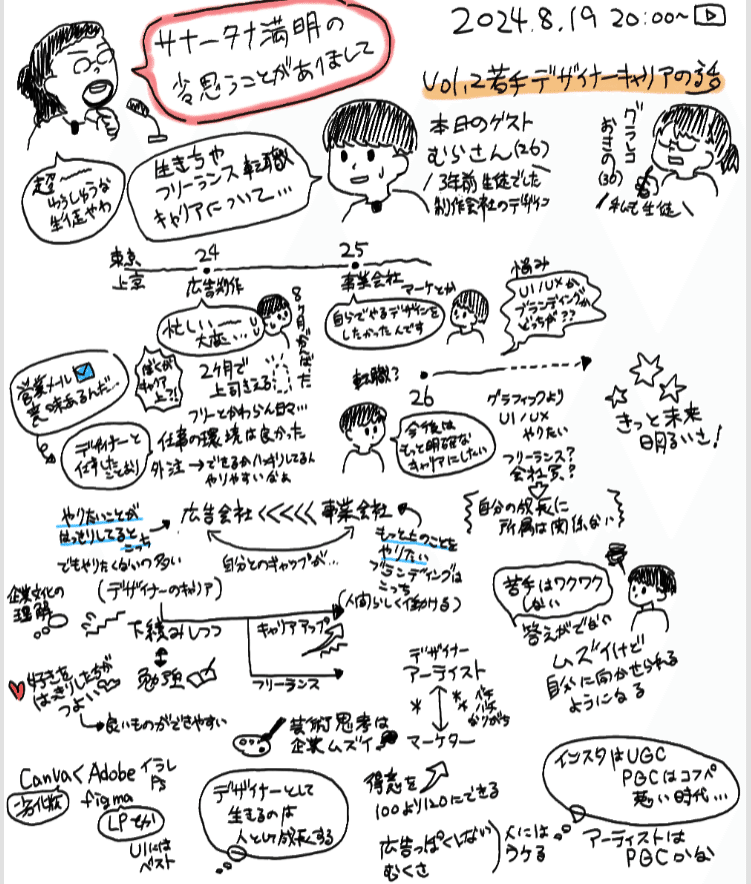 2024.8.19 20:00~
サナータナ満明の
劣思うことがありまして
Vol.2 若手デザイナーキャリアの話
本日のゲスト
むらさん(26)
3年前生徒でした
制作会社のデザイナー
グラレコ
おきの
(30)
私も生徒
超〜
ゆうしゅうな
生徒やわ
生き方や
フリーランス転職
キャリアについて…
東京
上京
24
広告制作
25
事業会社
マーケとか
忙しい〜
大変…
8ヶ月がんばった
自分でやるデザインを
したかったんです
悩み
UI/UXか
ブランディングか
どっちが??
営業メール
意味あるんだ…
ぼくが
キャリア
上?!
2ヶ月で
上司きえる
フリーとかわらん日々…
デザイナーと
仕事の環境は良かった
外注→できるかハッキリしてるん
やりやすいなぁ
転職?
26
今後は
もっと明確な
キャリアにしたい
グラフィックより
UI/UX
やりたい
フリーランス?
会社員?
自分の成長に
所属は関係ない
きっと未来
明るいさ!
やりたいことが
はっきりしてると
こっち
でもやりたくないつの多い
広告会社<<<<<事業会社
自分とのギャップが…
もっと上のことを
やりたい
ブランディングは
こっち
(人間らしく働ける)
企業文化の
理解
(デザイナーのキャリア)
下積みしつつ
勉強
キャリアアップ
フリーランス
好きを
はっきりしたちが
つよい
→良いものができやすい
若手はワクワク
しない
答えがでない
ムズイけど
自分に向かせられる
ようになる
デザイナー
アーティスト
マーケター
バチ
バチ
なりがち
芸術思考は
企業ムズイ
Canva<Adobe
イラレ
Ps
劣化版
figma
LPとか
UIには
ベスト
デザイナーとして
生きるのは
人として成長する
得意を
100より120にできる
広告っぱくしない
むくさ
人には
ウケる
インスタはUGC
PGCはコスパ
悪い時代…
アーティストは
PGCかな